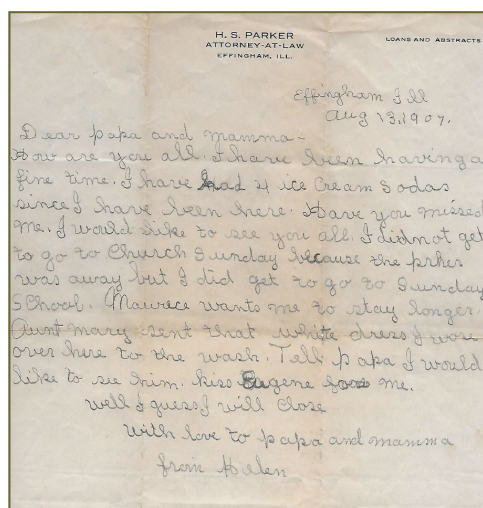 H. S. PARKER
ATTORNEY-AT-LAW
EFFINGHAM, ILL.
LOANS AND ABSTRACTS
Effingham Ill
Aug 13, 1907.
Dear papa and mamma-
How are you all. I have been having a
fine time. I have had 4 ice cream sodas
since I have been here. Have you missed
me. I would like to see you all. I didnot get
to go to Church Sunday because the prher
was away but I did get to go to Sunday
School. Maurece wants me to stay longer.
Aunt mary sent that white dress I wore
over here to the wash. Tell papa I would
like to see him. kiss Eugene for me.
well I guess I will close
with love to papa and mamma
from Helen